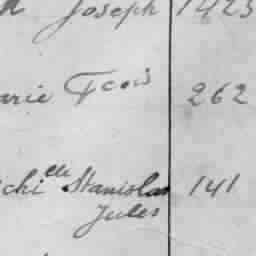 Joseph 1423
arie Fcois 262
chi elle Stanislas 141
Jules